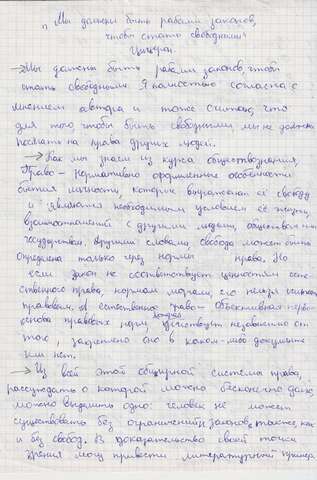 "Мы должны быть рабами законов,
чтобы стать свободными"
Цицерон.
→Мы должны быть рабами законов, чтобы
стать свободными. Я полностью согласна с
мнением автора и тоже считаю, что
для того, чтобы быть свободными мы не должны
посягать на права других людей.
→Как мы знаем из курса обществознания,
Право - нормативно оформленные особенности
бытия личности, которые выражают её свободу
и являются необходимым условием её жизни,
взаимоотношений с другими людьми, обществом и
государством. Другими словами, свобода может быть
определена только через нормы права. Но
если закон не соответствует ценностям есте-
ственного права, нормам морали, его нельзя считать
правовым. А естественное право - объективная перво-
основа правовых норм, которая действует независимо от
того, закреплено оно в каком-либо документе
или нет.
→Из всей этой обширной системы права,
рассуждать о которой можно бесконечно долго,
можно выделить одно: человек не может
существовать без ограничений, законов, также как
и без свобод. В доказательство своей точки
зрения могу привести литературный пример